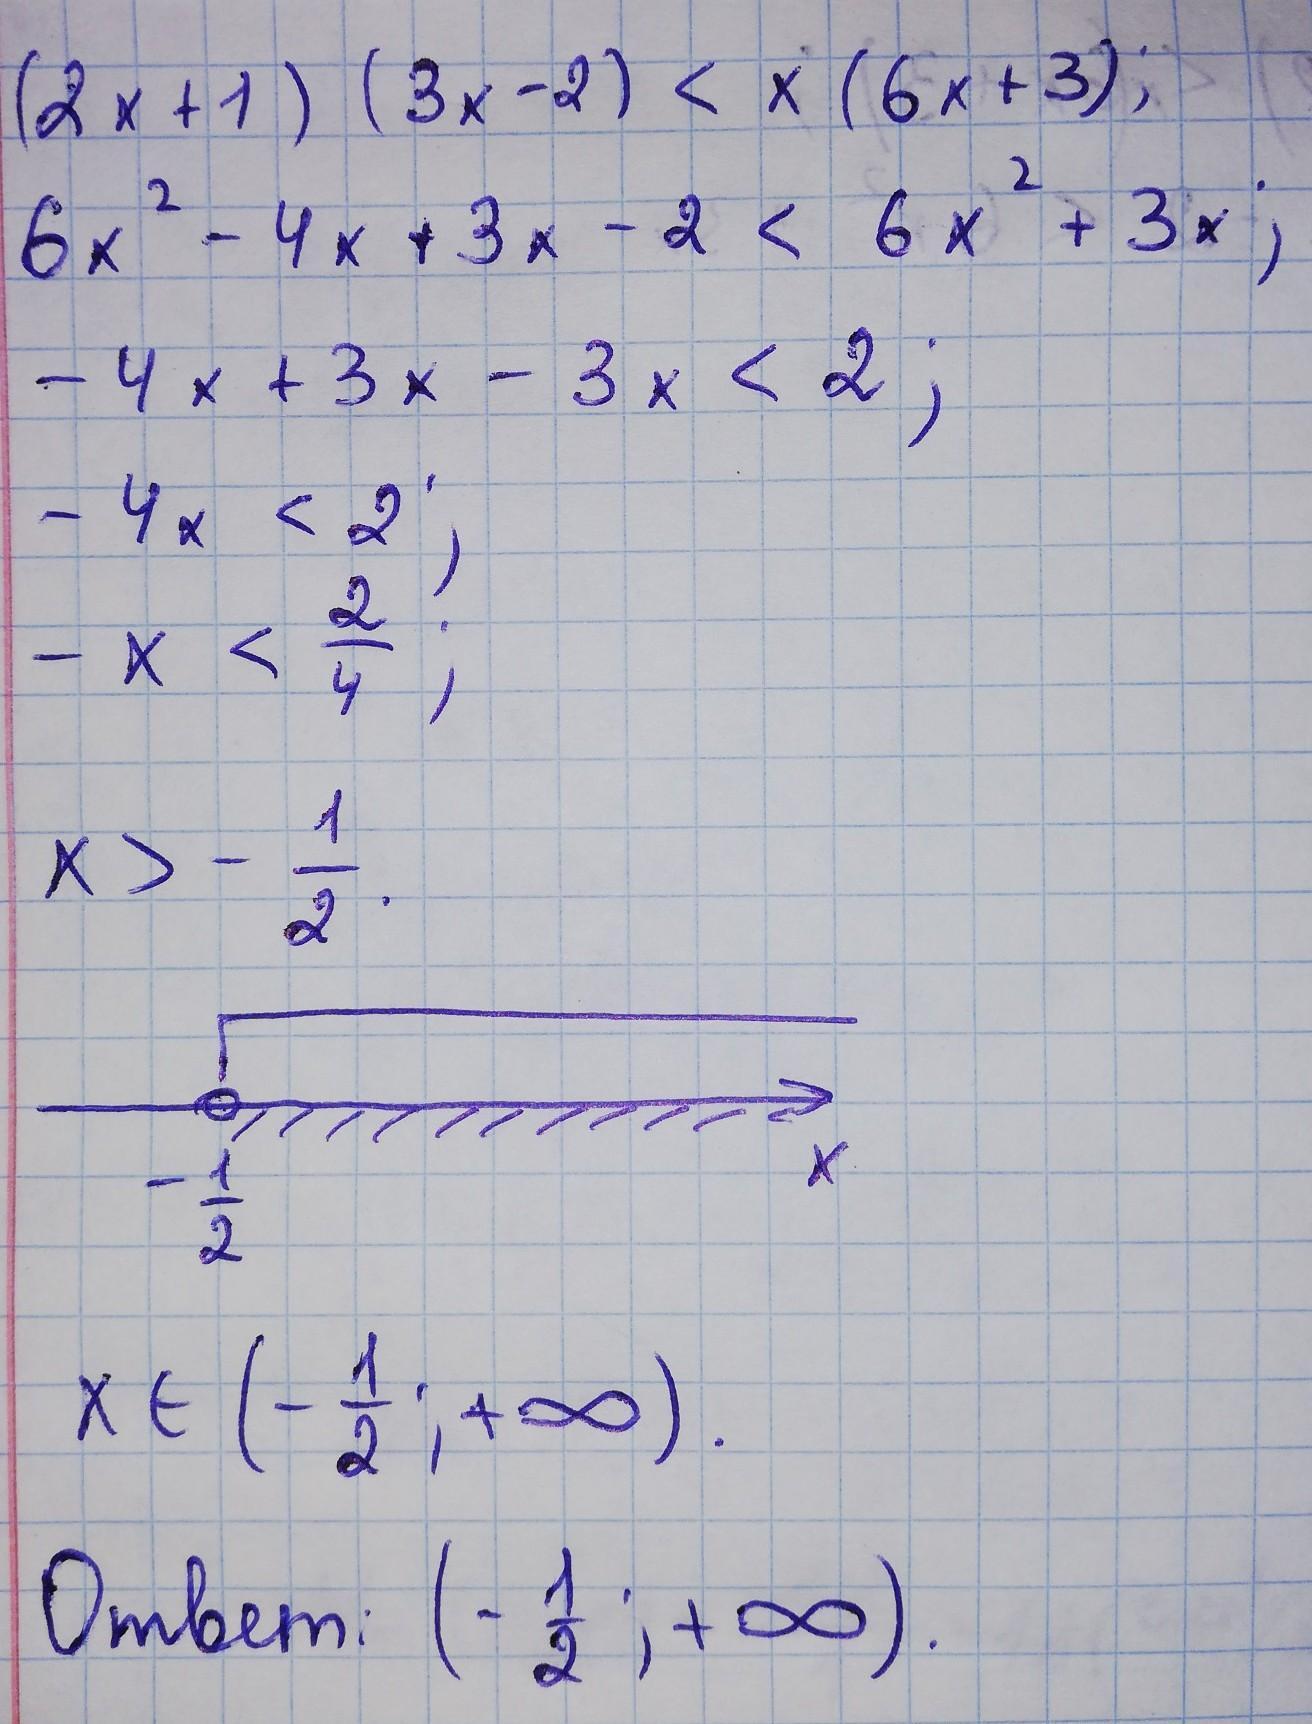 (2x+1)(3x-2) < x(6x+3);
6x² - 4x + 3x - 2 < 6x² + 3x;
-4x + 3x - 3x < 2;
-4x < 2;
-x < 2/4;
x > -1/2.
-1/2 x
x ∈ (-1/2; +∞).
Ответ: (-1/2; +∞).